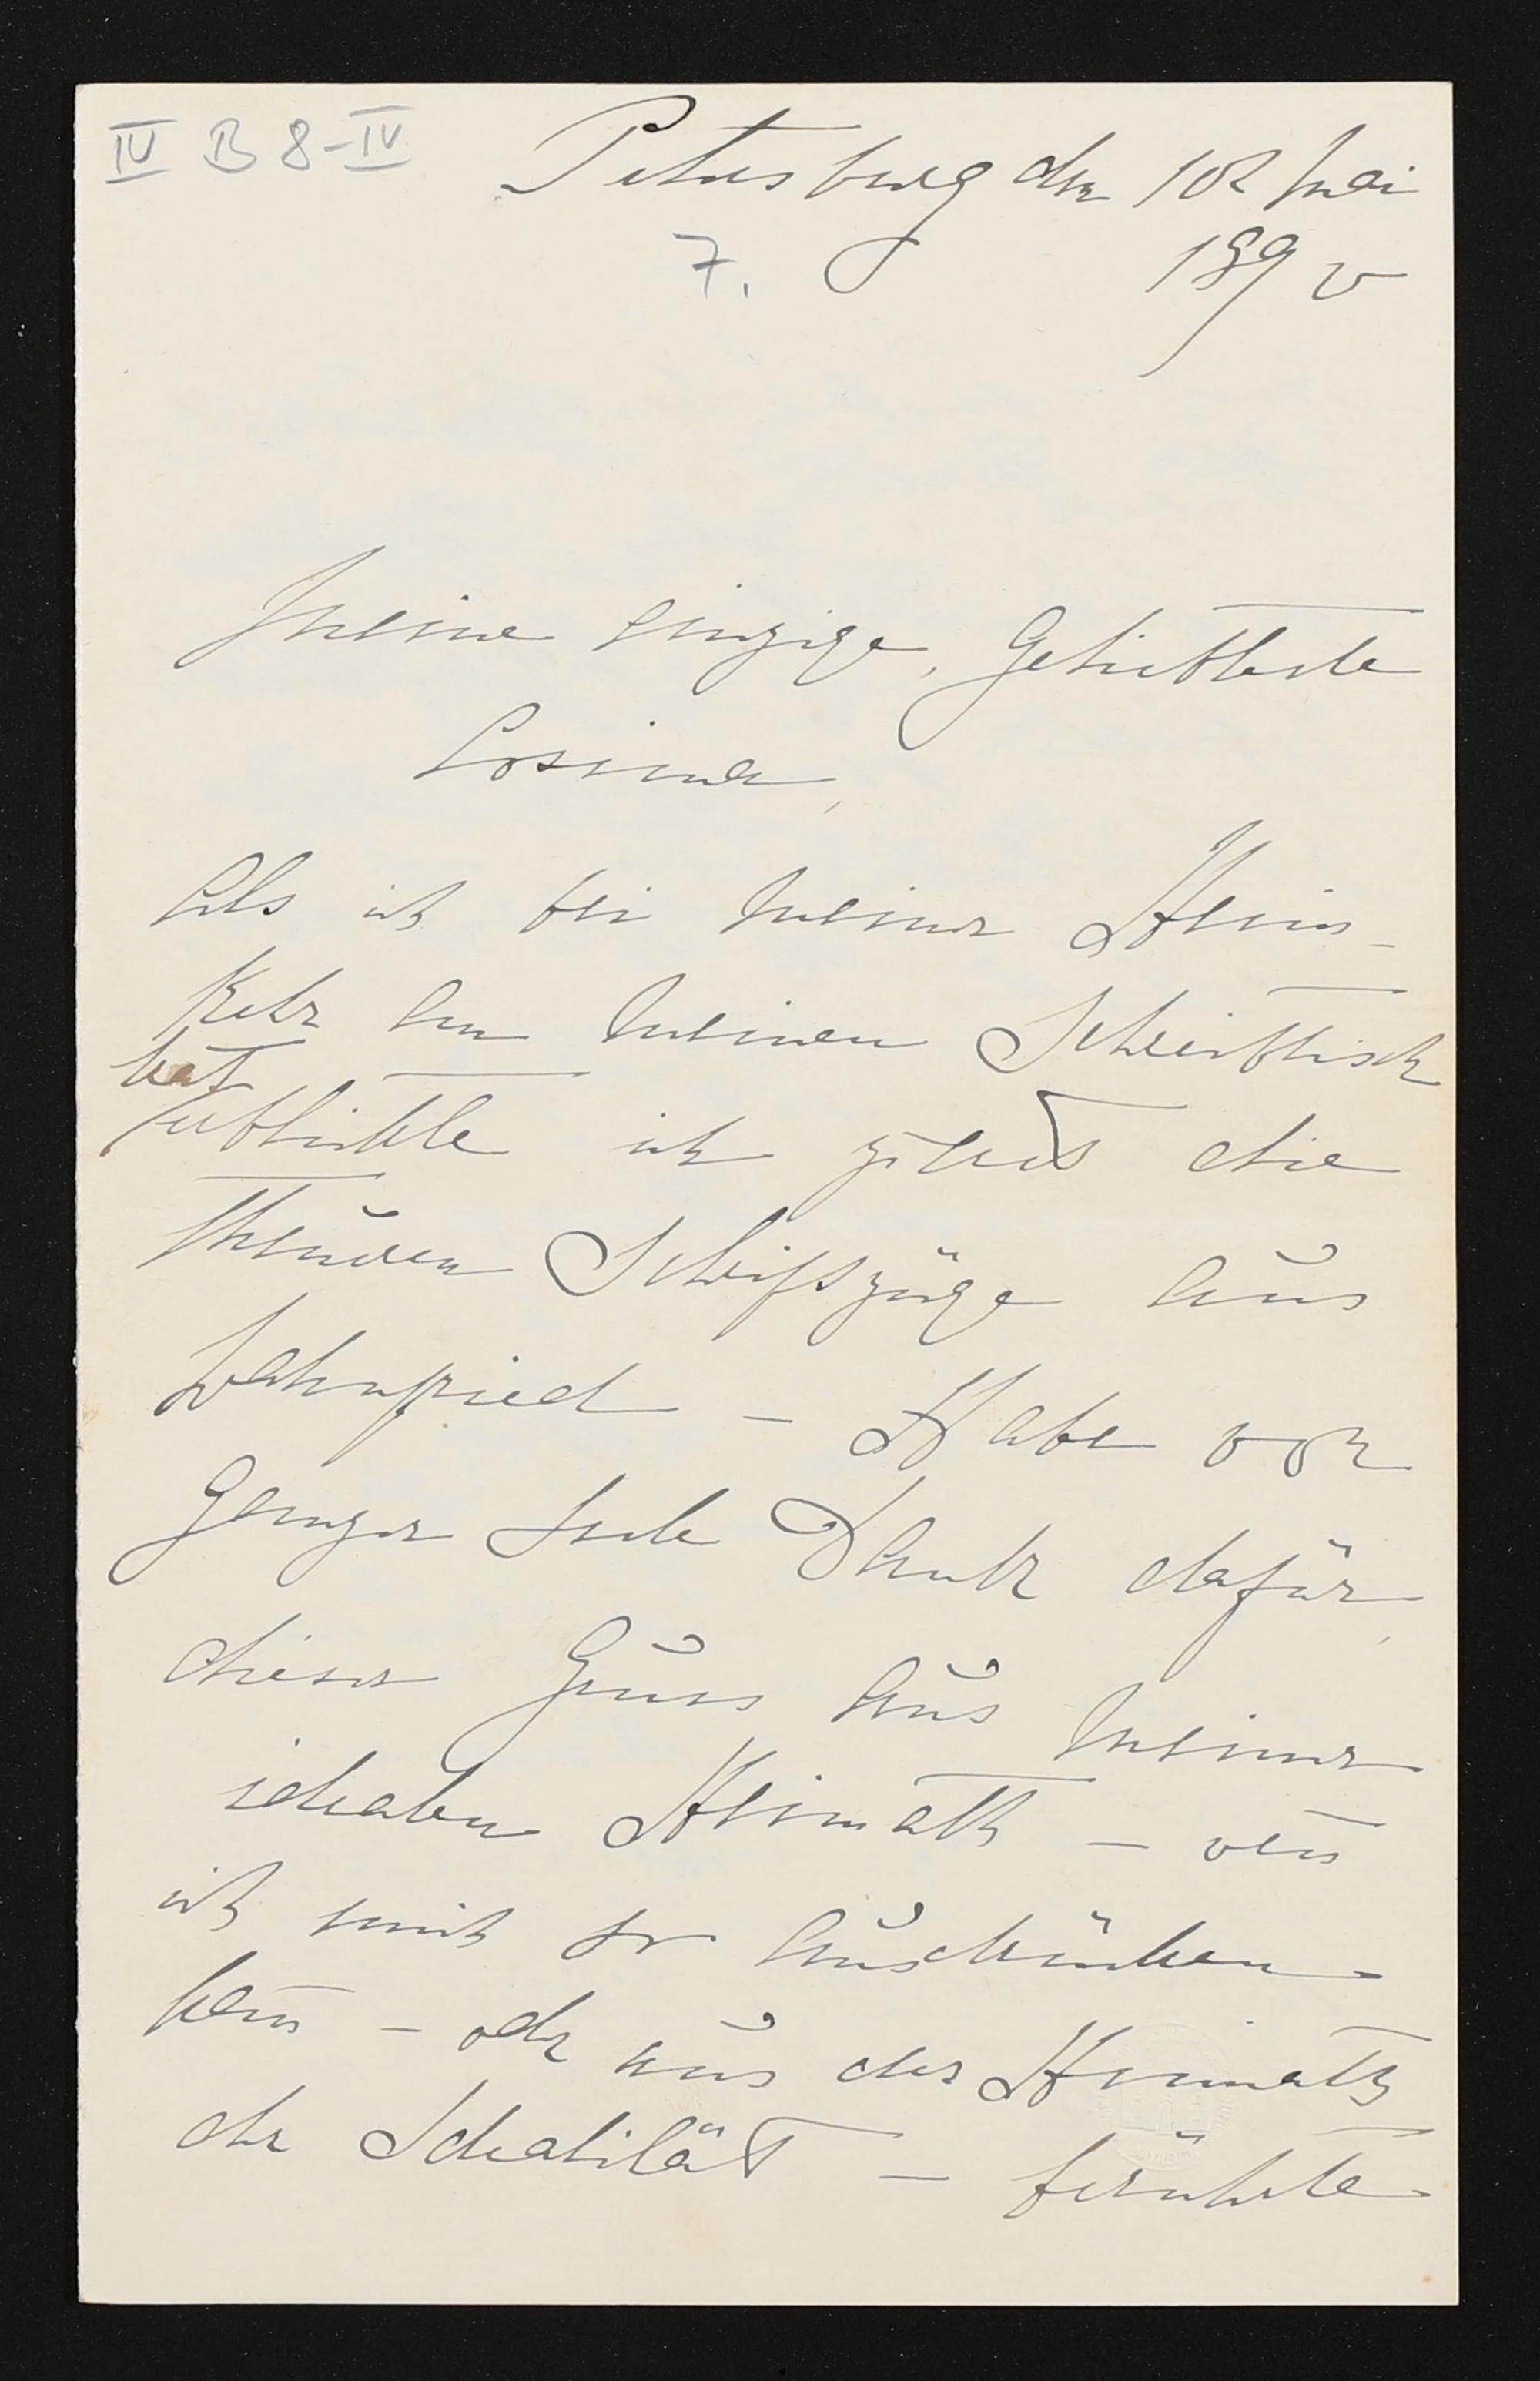 IV B 8-IV
Petersburg den 10t Mai
7.
189
Meine einzige, Geliebteste
Cosima,
Als ich bei meiner Heim-
kehr an meinen Schreibtisch
trat
erblickte ich zuerst die
theuren Schriftzüge aus
Wahnfried – Habe von
ganzer Seele Dank dafür,
dieser Gruss aus meiner
idealen Heimath – wen̄
ich mich so ausdrücken
kan̄ – oder aus der Heimath
der Idealität – berührte